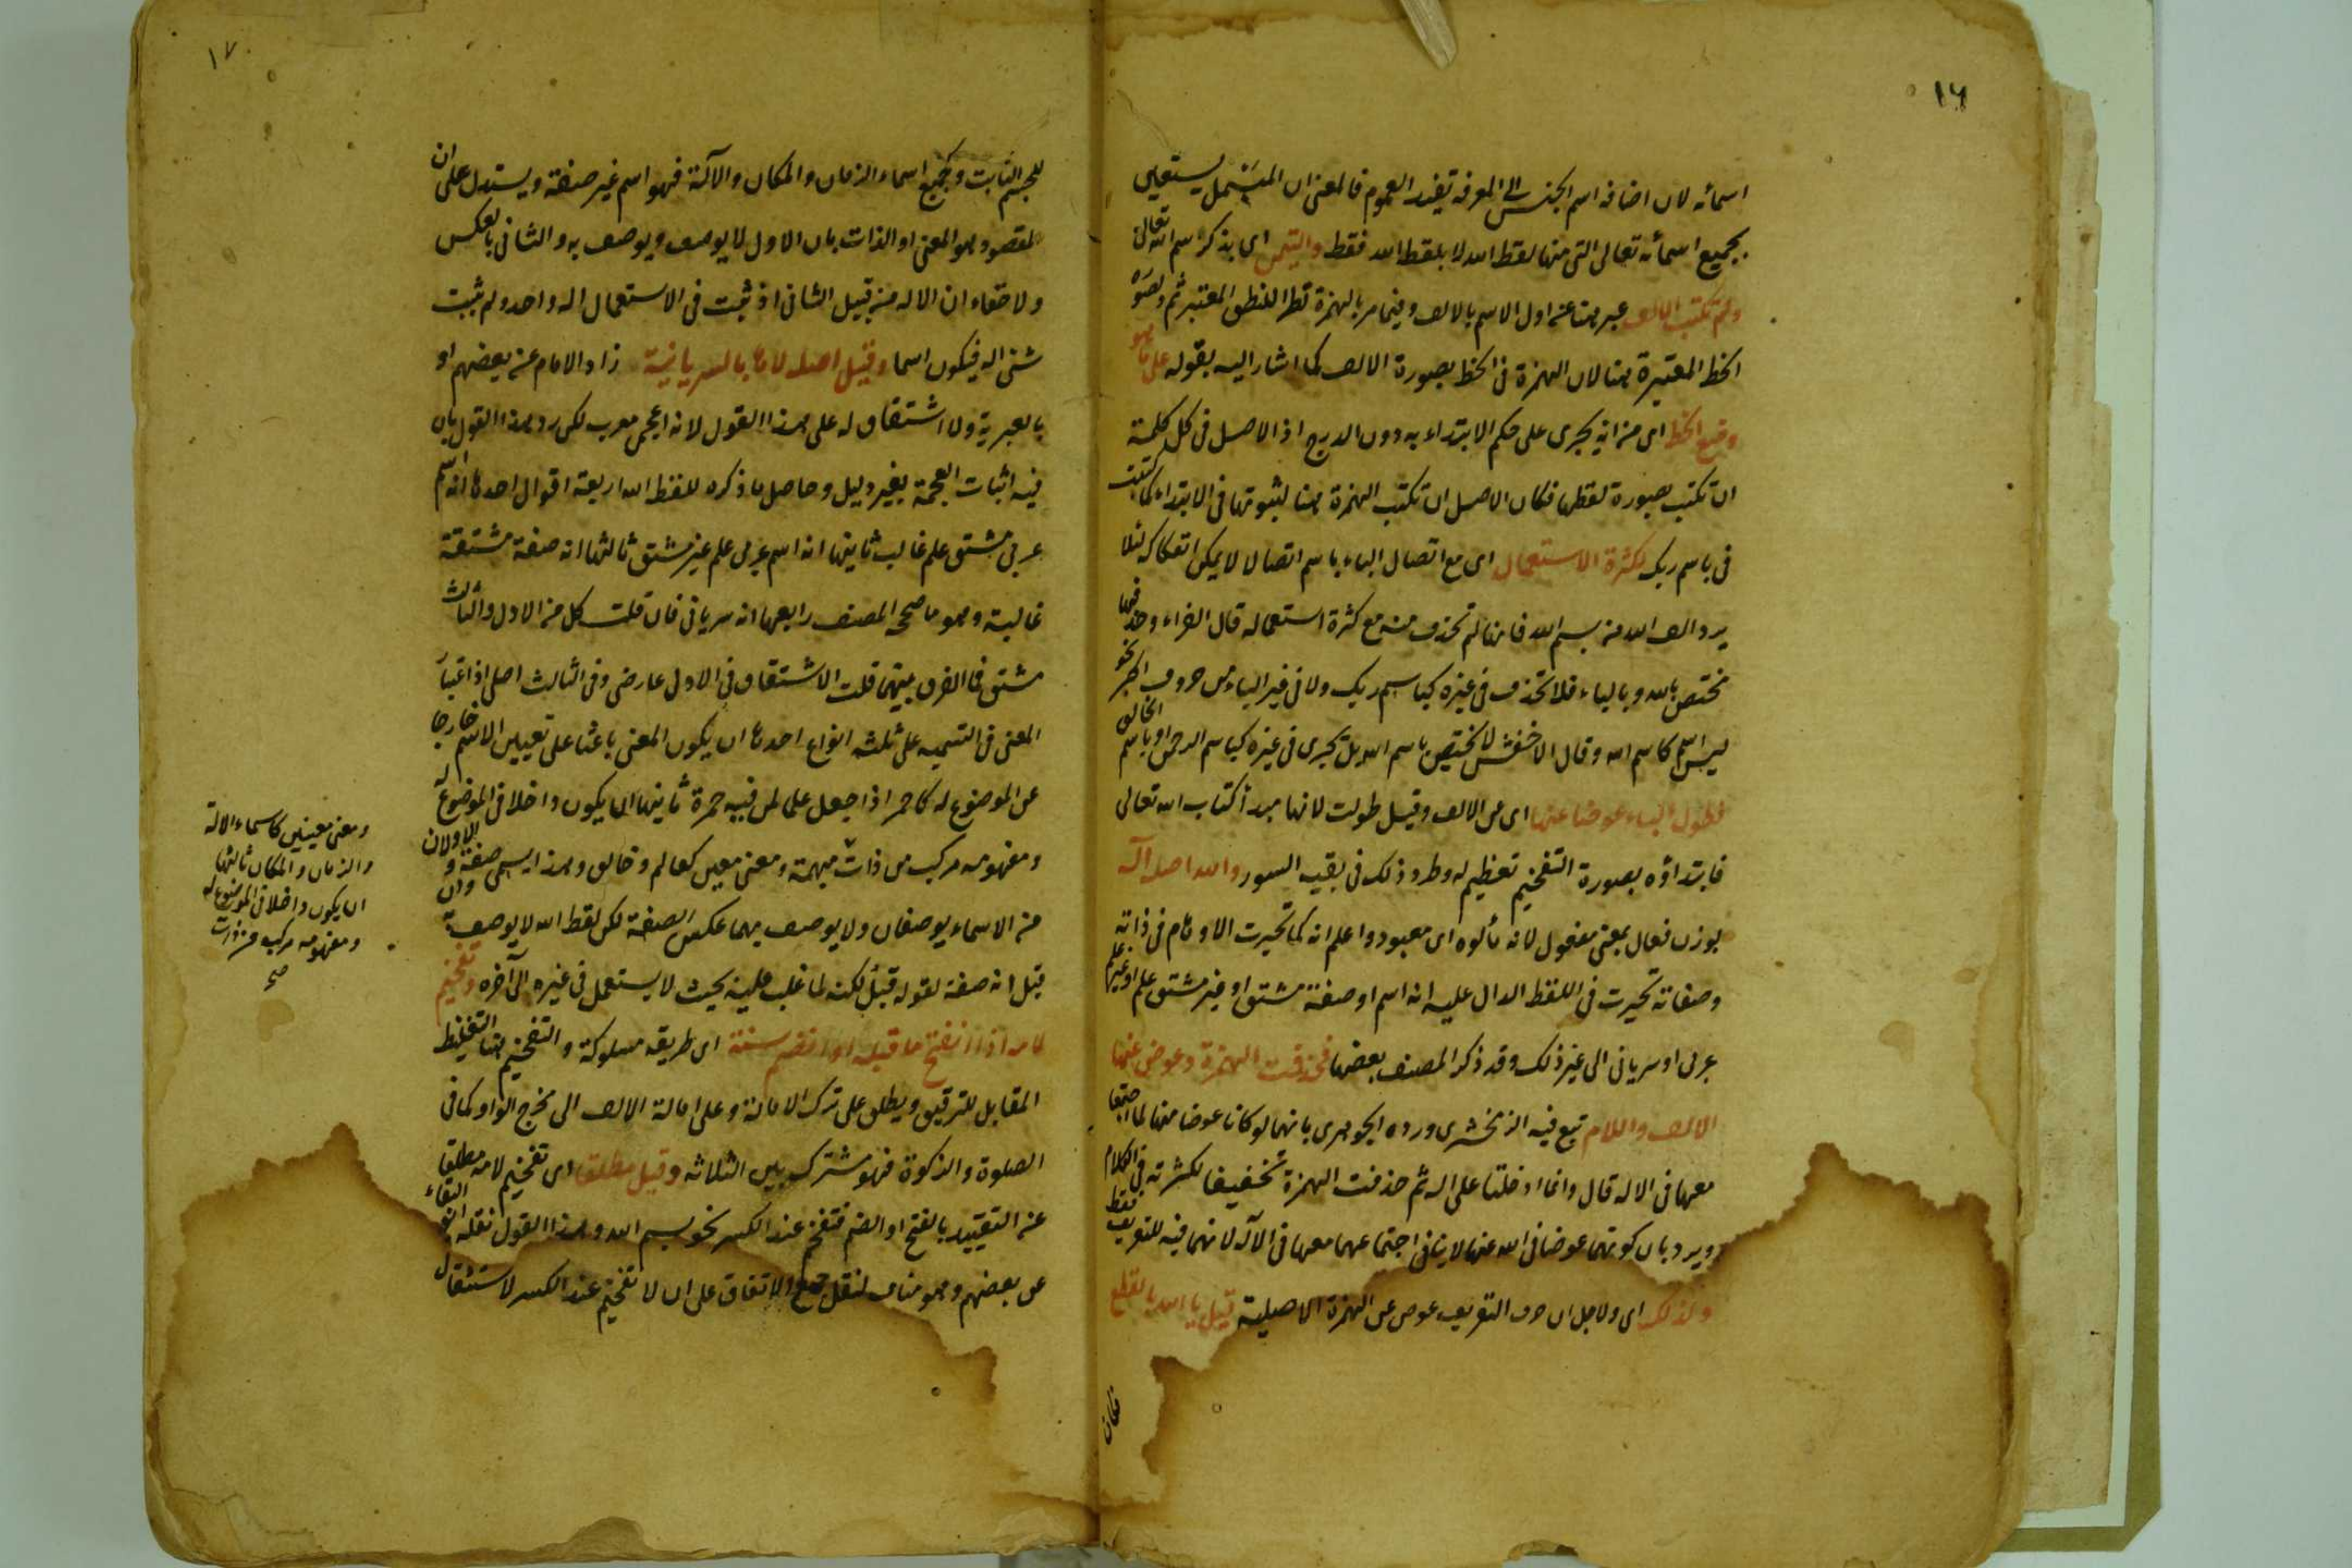 ١٦
اسمائه لان اضافة اسم الجنس الى المعرفة تفيد العموم فالمعنى ان المبسمل يستعين
بجميع اسمائه تعالى التى منها لفظ الله لا بلفظ الله فقط والتيمن اى بذكر اسم الله تعالى
ولم تكتب الالف عبر هنا عن اول الاسم بالالف وفيما مر بالهمزة نظرا للنطق المعتبر ثم ولصورة
الخط المعتبرة هنا لان الهمزة فى الخط بصورة الالف كما اشار اليه بقوله على ما هو
وضع الخط اى من انه يجرى على حكم الابتداء به دون الدرج اذ الاصل فى كل كلمة
ان تكتب بصورة لفظها فكان الاصل ان تكتب الهمزة هنا لثبوتها فى الابتداء كما كتبت
فى باسم ربك لكثرة الاستعمال اى مع اتصال الباء باسم اتصالا لا يمكن انفكاكه لئلا
يرد الف الله من بسم الله فانها لم تحذف منه مع كثرة استعماله قال الفراء وحذفها
مختص بالله وبالباء فلا تحذف فى غيره كباسم ربك ولا فى غير الباء من حروف الجر نحو
ليس اسم كاسم الله وقال الاخفش لا يختص باسم الله بل يجرى فى غيره كباسم الرحمن او باسم الخالق
وطول الباء عوضا عنها اى من الالف وقيل طولت لانها مبدأ كتاب الله تعالى
فابتداؤه بصورة التفخيم تعظيم له وطرد ذلك فى بقية السور والله اصله اله
بوزن فعال بمعنى مفعول لانه مألوه اى معبود واعلم انه كما تحيرت الاوهام فى ذاته
وصفاته تحيرت فى اللفظ الدال عليه انه اسم او صفة مشتق او غير مشتق علم او غير علم
عربى او سريانى الى غير ذلك وقد ذكر المصنف بعضها فحذفت الهمزة وعوض عنها
الالف واللام تبع فيه الزمخشرى ورده الجوهرى بانهما لو كانا عوضا منها لما اجتمعا
معها فى الاله قال وانما ادخلتا على اله ثم حذفت الهمزة تخفيفا لكثرته فى الكلام
ويرد بان كونهما عوضا فى الله عنها لا ينافى اجتماعهما معها فى الاله لانهما فيه للتعريف فقط
ولذلك اى ولاجل ان حرف التعريف عوض عن الهمزة الاصلية قيل يا الله بالقطع
١٧
للجسم الثابت وكجميع اسماء الزمان والمكان والآلة فهو اسم غير صفة ويستدل على ان
المقصود هو المعنى او الذات بان الاول لا يوصف ويوصف به والثانى بالعكس
ولا خفاء ان الاله من قبيل الثانى اذ ثبت فى الاستعمال اله واحد ولم يثبت
شئ اله فيكون اسما وقيل اصله لاها بالسريانية زاد الامام عن بعضهم او
بالعبرية ولا اشتقاق له على هذا القول لانه اعجمى معرب لكن رد هذا القول بان
فيه اثبات العجمة بغير دليل وحاصل ما ذكره للفظ الله اربعة اقوال احدها انه اسم
عربى مشتق علم غالب ثانيها انه اسم عربى علم غير مشتق ثالثها انه صفة مشتقة
غالبة وهو ما صححه المصنف رابعها انه سريانى فان قلت كل من الاول والثالث
مشتق فما الفرق بينهما قلت الاشتقاق فى الاول عارضى وفى الثالث اصلى اذ اعتبار
المعنى فى التسمية على ثلثة انواع احدها ان يكون المعنى باعثا على تعيين الاسم خارجا
عن الموضوع له كاحمر اذا جعل علما لمن فيه حمرة ثانيها ان يكون داخلا فى الموضوع له
ومفهومه مركب من ذات مبهمة ومعنى معين كعالم وخالق وهذا يسمى صفة والاولان
من الاسماء يوصفان ولا يوصف بهما عكس الصفة لكن لفظ الله لا يوصف به
قيل انه صفة لقوله قبل لكنه لما غلب عليه بحيث لا يستعمل فى غيره الى آخره وتفخيم
لامه اذا انفتح ما قبله او انضم سنة اى طريقة مسلوكة والتفخيم هنا التغليظ
المقابل للترقيق ويطلق على ترك الامالة وعلى امالة الالف الى مخرج الواو كما فى
الصلوة والزكوة فهو مشترك بين الثلاثة وقيل مطلقا اى تفخيم لامه مطلقا
عن التقييد بالفتح او الضم فتفخم عند الكسر نحو بسم الله وهذا القول نقله ابو البقاء
عن بعضهم وهو مناف لنقل جمع الاتفاق على ان لا تفخيم عند الكسر لاستثقال
ومعنى معينين كاسماء الالة
والزمان والمكان ثالثها
ان يكون داخلا فى الموضوع له
ومفهومه مركب من ذات
صح